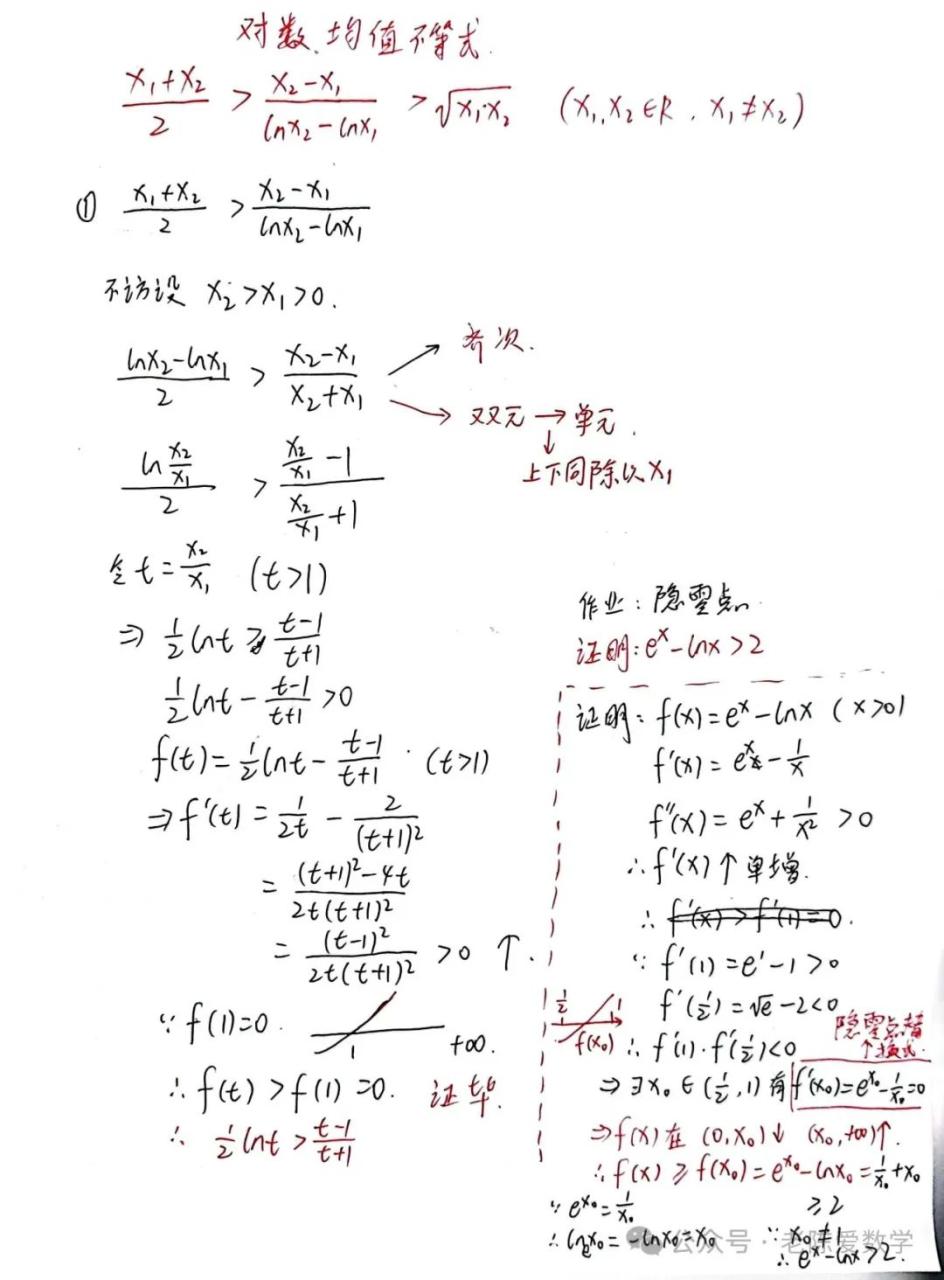 对数均值不等式.
(x₁+x₂)/2 > (x₂-x₁)/(lnx₂-lnx₁) > √(x₁·x₂) (x₁,x₂∈R, x₁≠x₂)
① (x₁+x₂)/2 > (x₂-x₁)/(lnx₂-lnx₁)
不访设 x₂>x₁>0.
(lnx₂-lnx₁)/2 > (x₂-x₁)/(x₂+x₁)
→ 齐次.
→ 双元 → 单元.
↓
上下同除以x₁
(ln x₂/x₁)/2 > (x₂/x₁ -1)/(x₂/x₁ +1)
令t=x₂/x₁ (t>1)
⇒ ½lnt > (t-1)/(t+1)
½lnt - (t-1)/(t+1) >0
f(t)=½lnt - (t-1)/(t+1) (t>1)
⇒f'(t) = 1/(2t) - 2/(t+1)²
= ((t+1)²-4t)/(2t(t+1)²)
= (t-1)²/(2t(t+1)²) >0 ↑.
∵ f(1)=0. 1 +∞.
∴ f(t) > f(1) =0. 证毕.
∴ ½lnt > (t-1)/(t+1)
作业: 隐零点.
证明: eˣ-lnx>2
证明: f(x)=eˣ-lnx (x>0)
f'(x)=eˣ-1/x
f''(x)=eˣ+1/x² >0
∴f'(x)↑单增.
∴ f'(x)>f'(1)=0.
∵ f'(1)=e¹-1>0
f'(½)=√e-2<0
½ 1
f(x₀)
∴ f'(1)·f'(½)<0
隐零点替
↑换式.
⇒ ∃x₀∈(½,1) 有 f'(x₀)=eˣ⁰-1/x₀=0
⇒f(x)在 (0,x₀)↓ (x₀,+∞)↑.
∴f(x)≥f(x₀)=eˣ⁰-lnx₀=1/x₀+x₀
≥2
∵ eˣ⁰=1/x₀
∴ lneˣ⁰=-lnx₀=x₀
∵ x₀≠1
∴ eˣ-lnx>2.
公众号·老陈爱数学